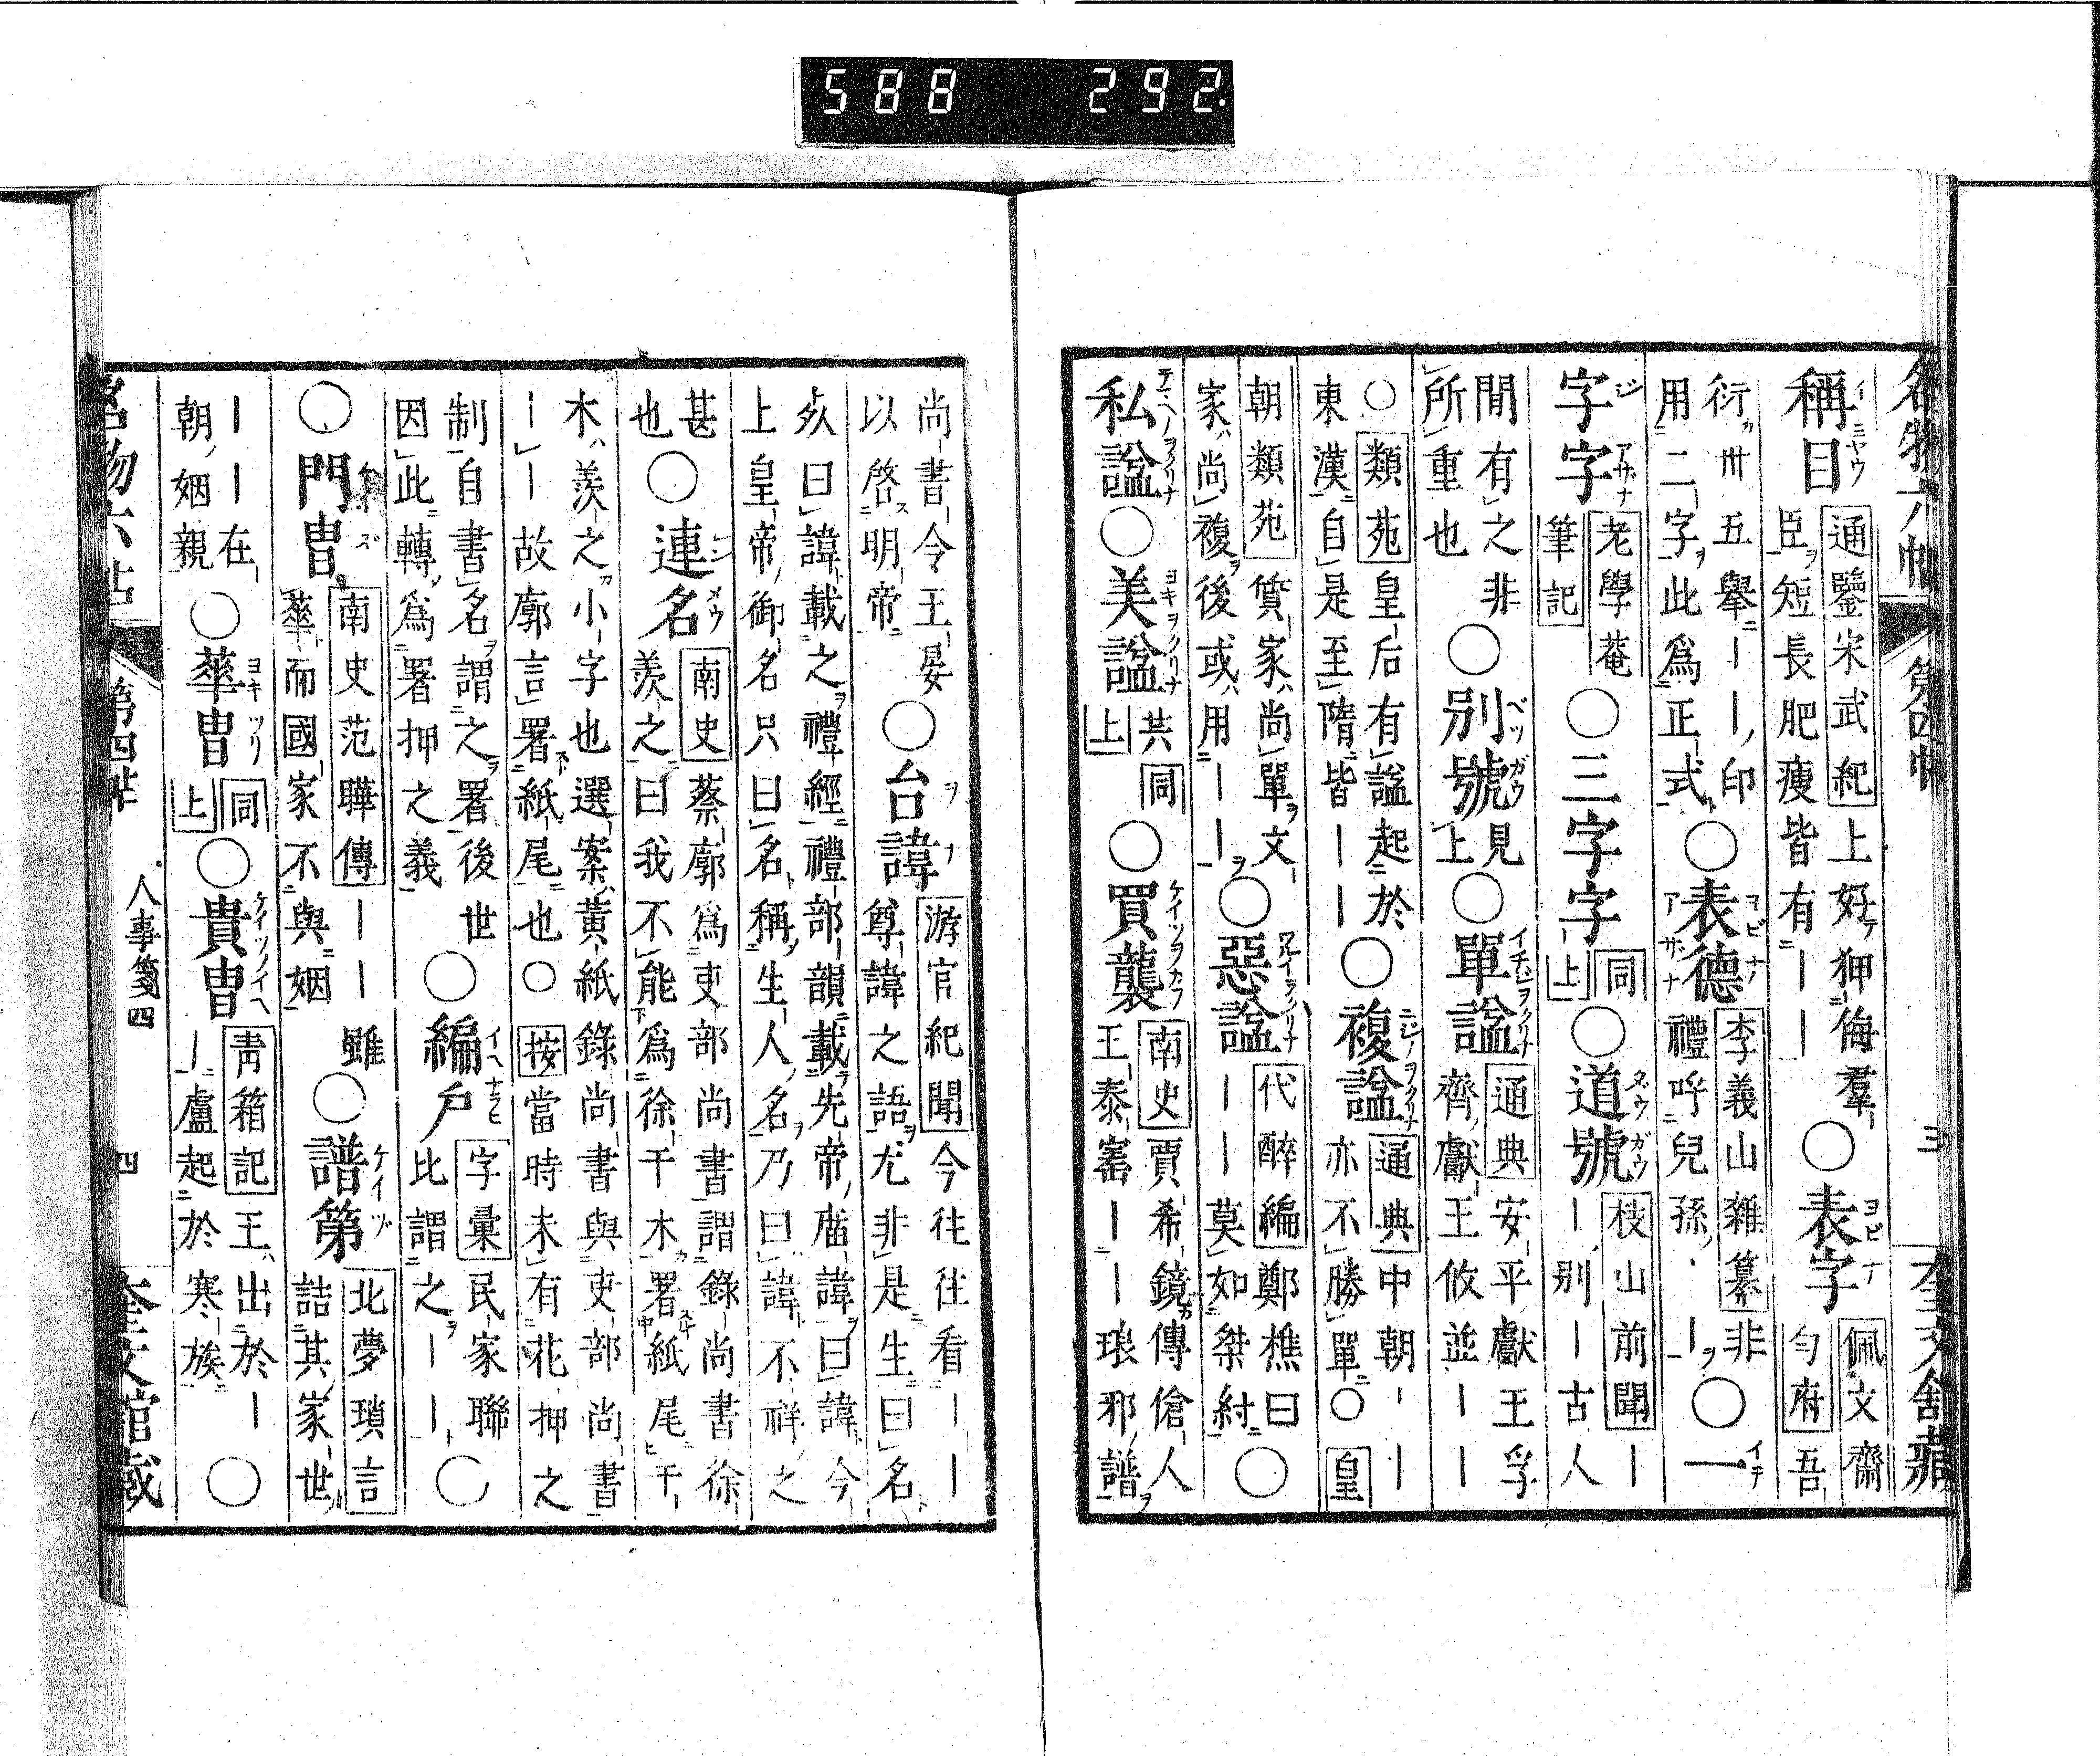 588 292.
名物六帖 第四帖 三 奎文舘藏
稱目 通鑒宋武紀上好狎侮羣臣短長肥瘦皆有｜｜ ○表字 佩文齋匀府吾
衍卅五舉｜｜印用二字此爲正式 ○表德 李義山雜纂非禮呼兒孫｜｜ ○一
字字 老學菴筆記 ○三字字 同上 ○道號 枝山前聞｜｜别｜古人
閒有之非所重也 ○别號 見上 ○單諡 通典安平獻王孚齊獻王攸並｜｜
○類苑皇后有諡起於東漢自是至隋皆｜｜ ○複諡 通典中朝｜｜亦不勝單○皇
朝類苑質家尚單文家尚複後或用｜｜ ○惡諡 代醉編鄭樵曰｜｜莫如桀紂 ○
私諡 ○美諡 共同上 ○買襲 南史賈希鏡傳傖人王泰寳｜｜琅邪譜
尚書令王晏以啓明帝 ○台諱 游官紀聞今往往看｜｜尊諱之語尤非是生曰名
㱥曰諱載之禮經禮部韻載先帝庿諱曰諱今上皇帝御名只曰名稱生人名乃曰諱不祥之
甚也 ○連名 南史蔡廓爲吏部尚書謂錄尚書徐羨之曰我不能爲徐干木署紙尾干
木羨之小字也選案黃紙錄尚書與吏部尚書｜｜故廓言署紙尾也○按當時未有花押之
制自書名謂之署後世因此轉爲署押之義 ○編户 字彙民家聯比謂之｜｜ ○
○門胄 南史范曄傳｜｜雖華而國家不與姻 ○譜第 北夢瑣言詰其家世
｜｜在朝姻親 ○華胄 同上 ○貴胄 青箱記王出於｜｜盧起於寒族 ○
名物六帖 第四帖 人事箋四 四 奎文舘藏